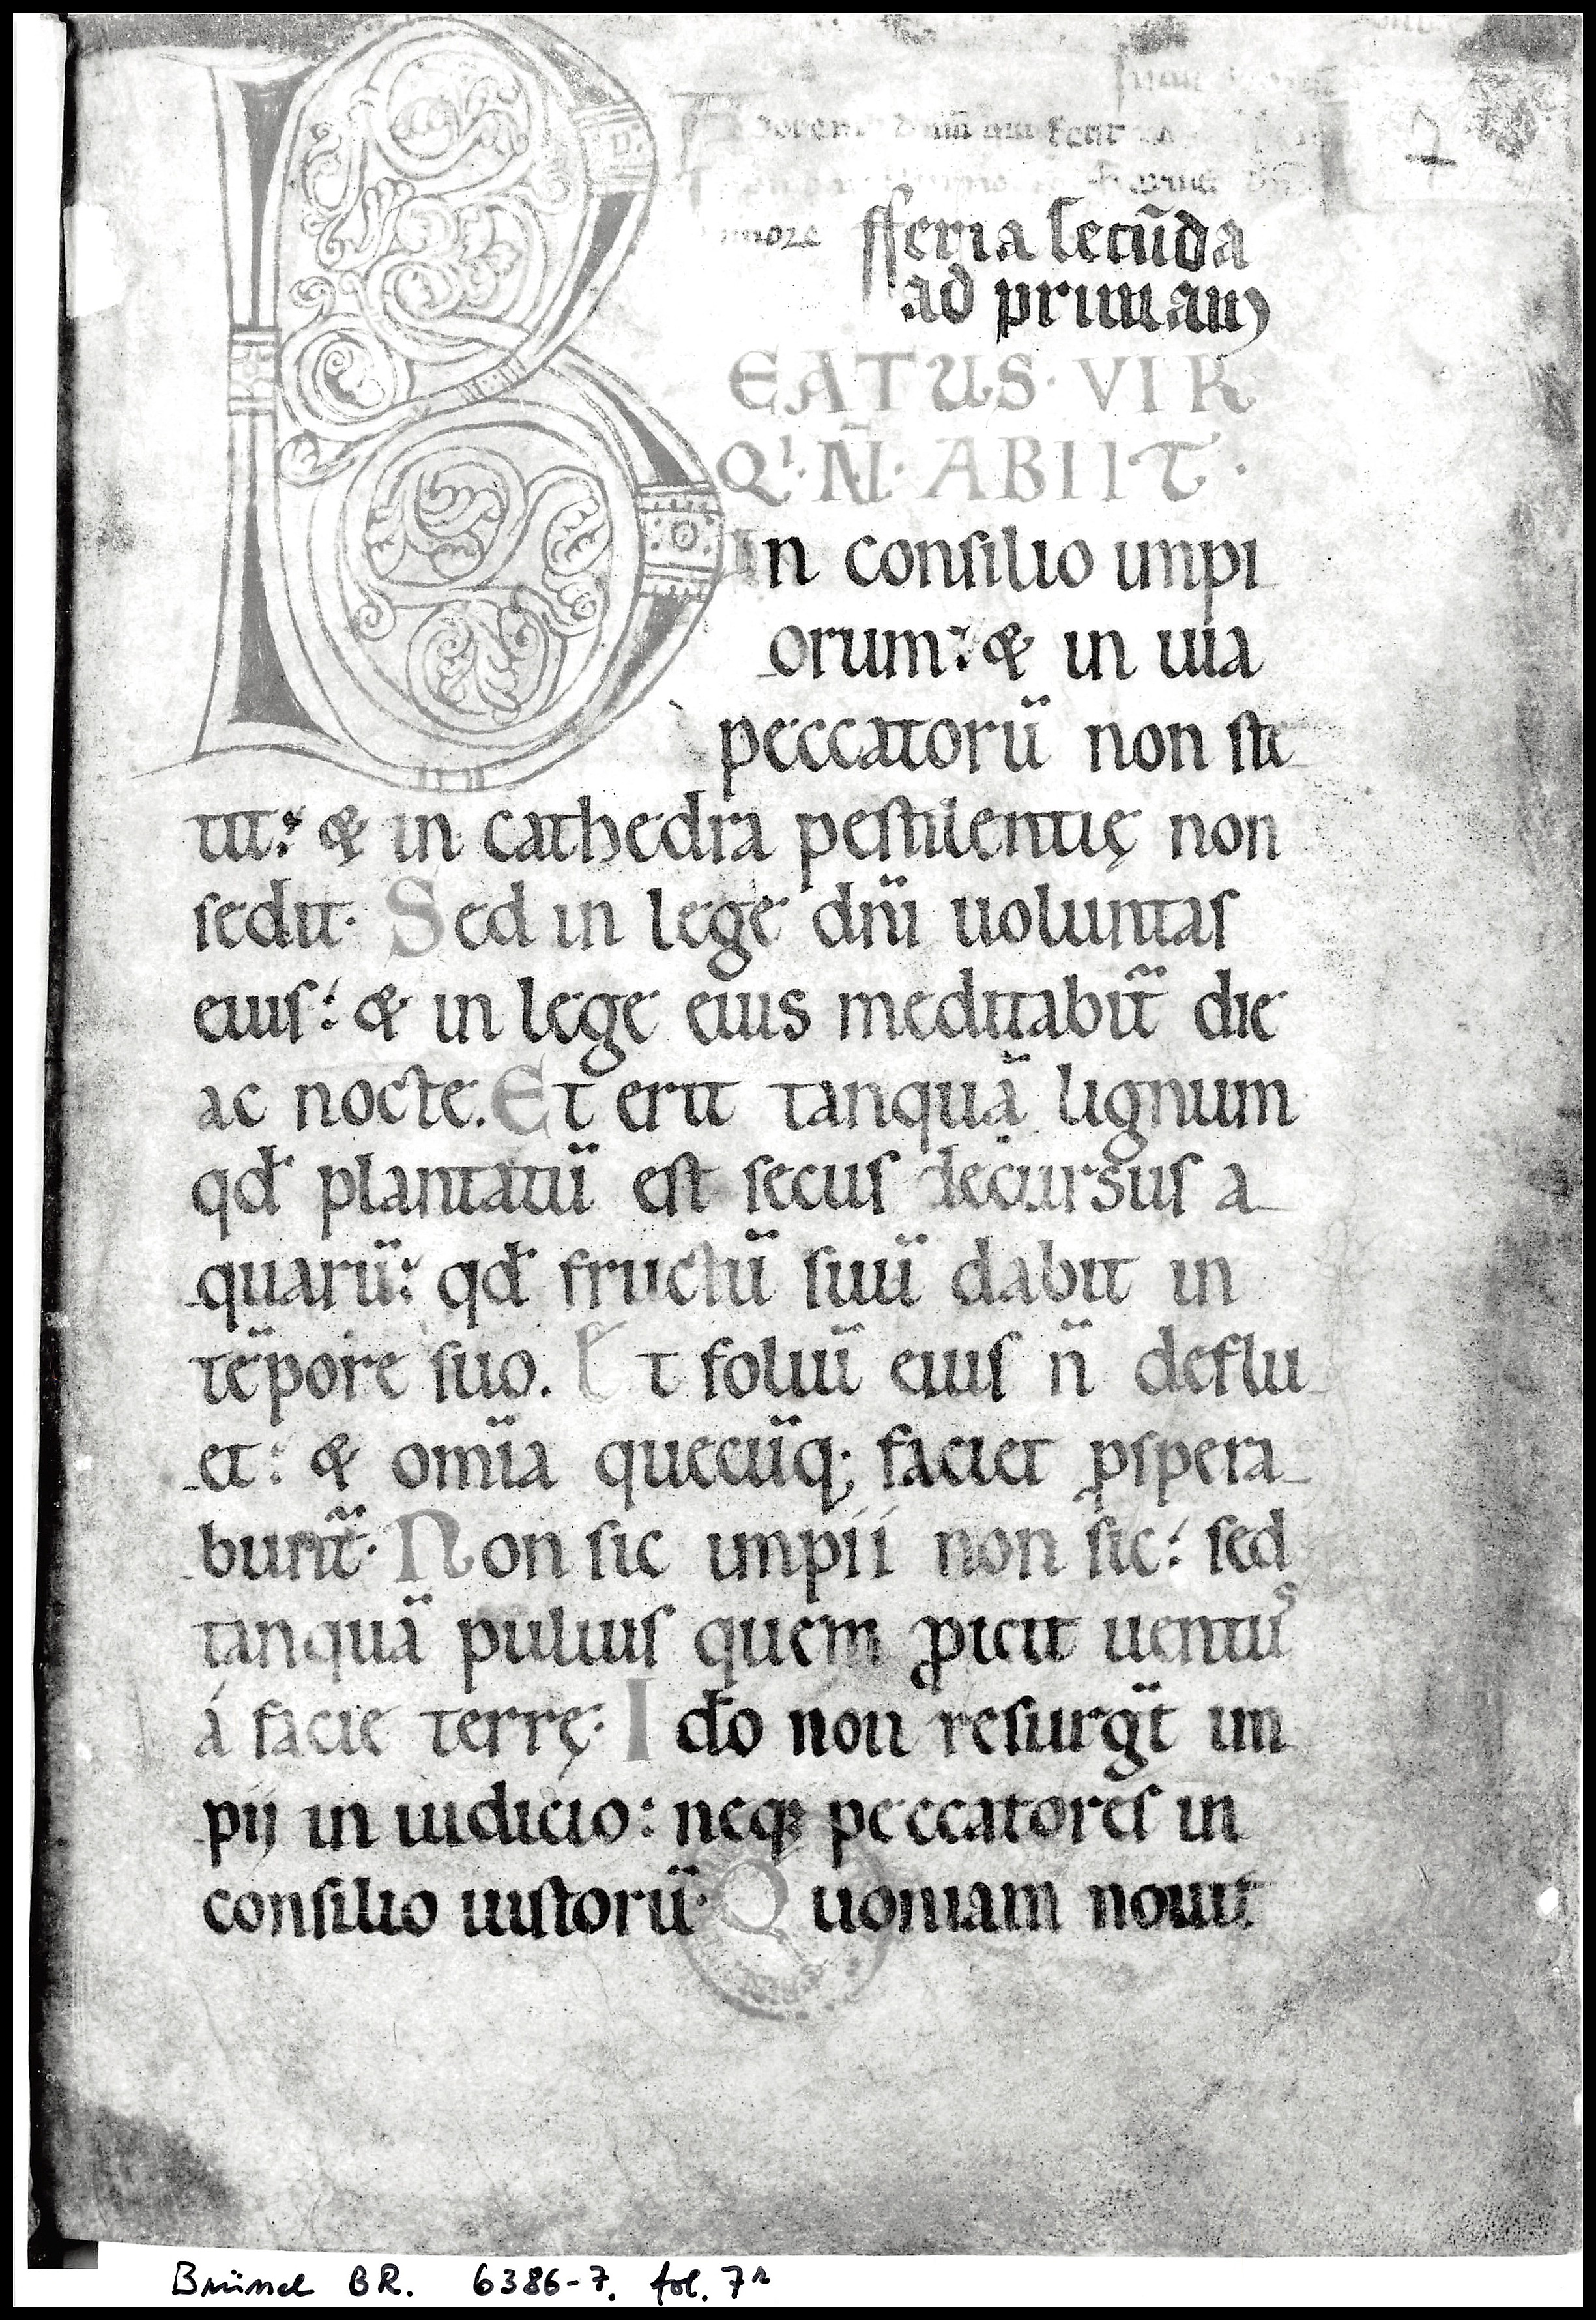 7
more fferia secūda
ad primam
BEATUS· VIR
Qⁱ· N̄· ABIIT·
In consilio impi
orum: & in uia
peccatorū non ste
tit: & in cathedra pestilentię non
sedit· Sed in lege dn̄i uoluntas
eius: & in lege eius meditabit̄ die
ac nocte. Et erit tanquā lignum
qđ plantatū est secus decursus a
quarū: qđ fructū suū dabit in
tēpore suo. Et foliū eius n̄ deflu
et: & om̄ia quecūq; faciet ꝓspera
bunt̄· Non sic impii non sic: sed
tanquā puluis quem ꝓicit uentuˢ
á facie terrę· Ideo non resurgt̄ im
pij in iudicio: neqꝫ peccatores in
consilio iustorū· Quoniam nouit
Brüssel BR. 6386-7. fol. 7r